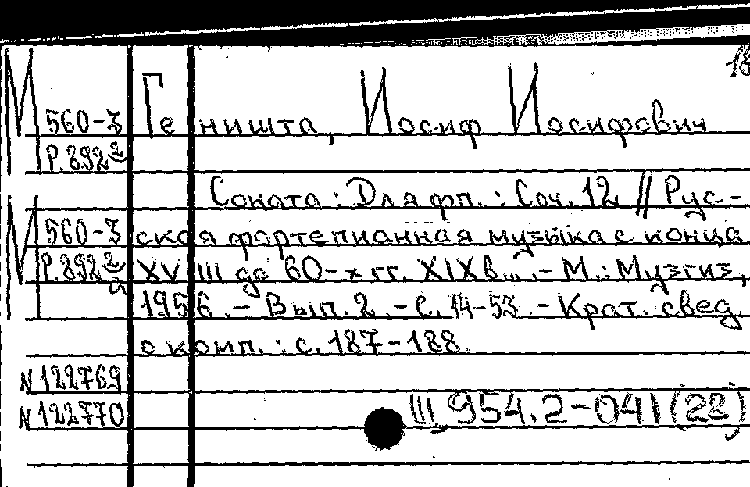 М 560-3 Геништа, Иосиф Иосифович
Р.892 2
Соната : Для фп. : Соч. 12 // Рус-
М 560-3 ская фортепианная музыка с конца
Р.892 2а XVIII до 60-х гг. XIX в... - М. : Музгиз,
1956. - Вып. 2. - С. 14-53. - Крат. свед.
о комп. : с. 187-188.
N122769
N122770 III 954.2-041(22)